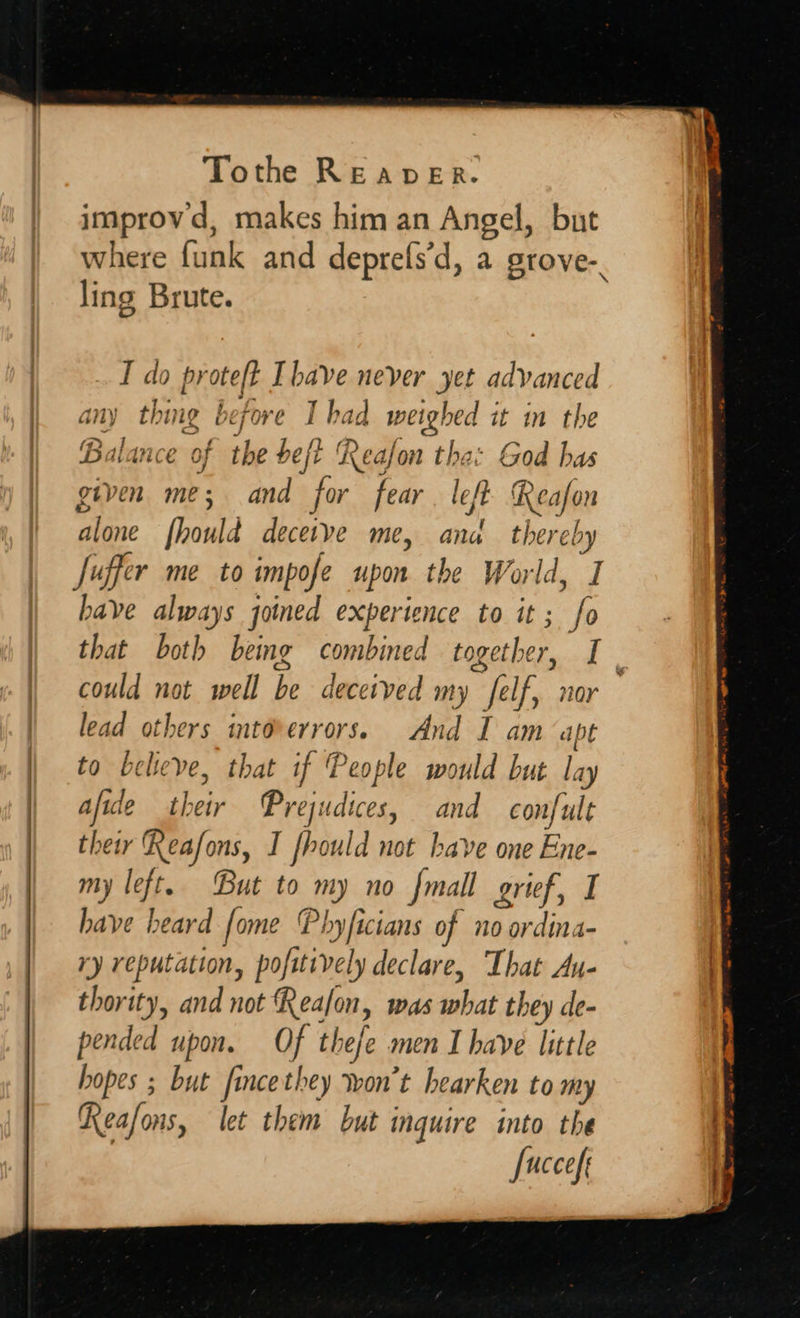 To the READER.
improv'd, makes him an Angel, but
where ſunk and depreſs'd, a grove-
ling Brute.
I do proteſt I have never yet advanced
any thing before I had weighed it in the
Balance of the beſt Reaſon that God has
given me; and for fear leſt Reaſon
alone ſhould deceive me, and thereby
ſuffer me to impoſe upon the World, I
have always joined experience to it; ſo
that both being combined together, I
could not well be deceived my ſelf, nor
lead others into errors. And I am apt
to believe, that if People would but lay
aſide their Prejudices, and conſult
their Reaſons, I ſhould not have one Ene-
my left. But to my no ſmall grief, I
have heard ſome Phyſicians of no ordina-
ry reputation, poſitively declare, That Au-
thority, and not Reaſon, was what they de-
pended upon. Of theſe men I have little
hopes; but ſince they won't hearken to my
Reaſons, let them but inquire into the
ſucceſs